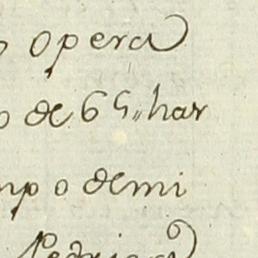 opera
o de 65,, har
mp o demi